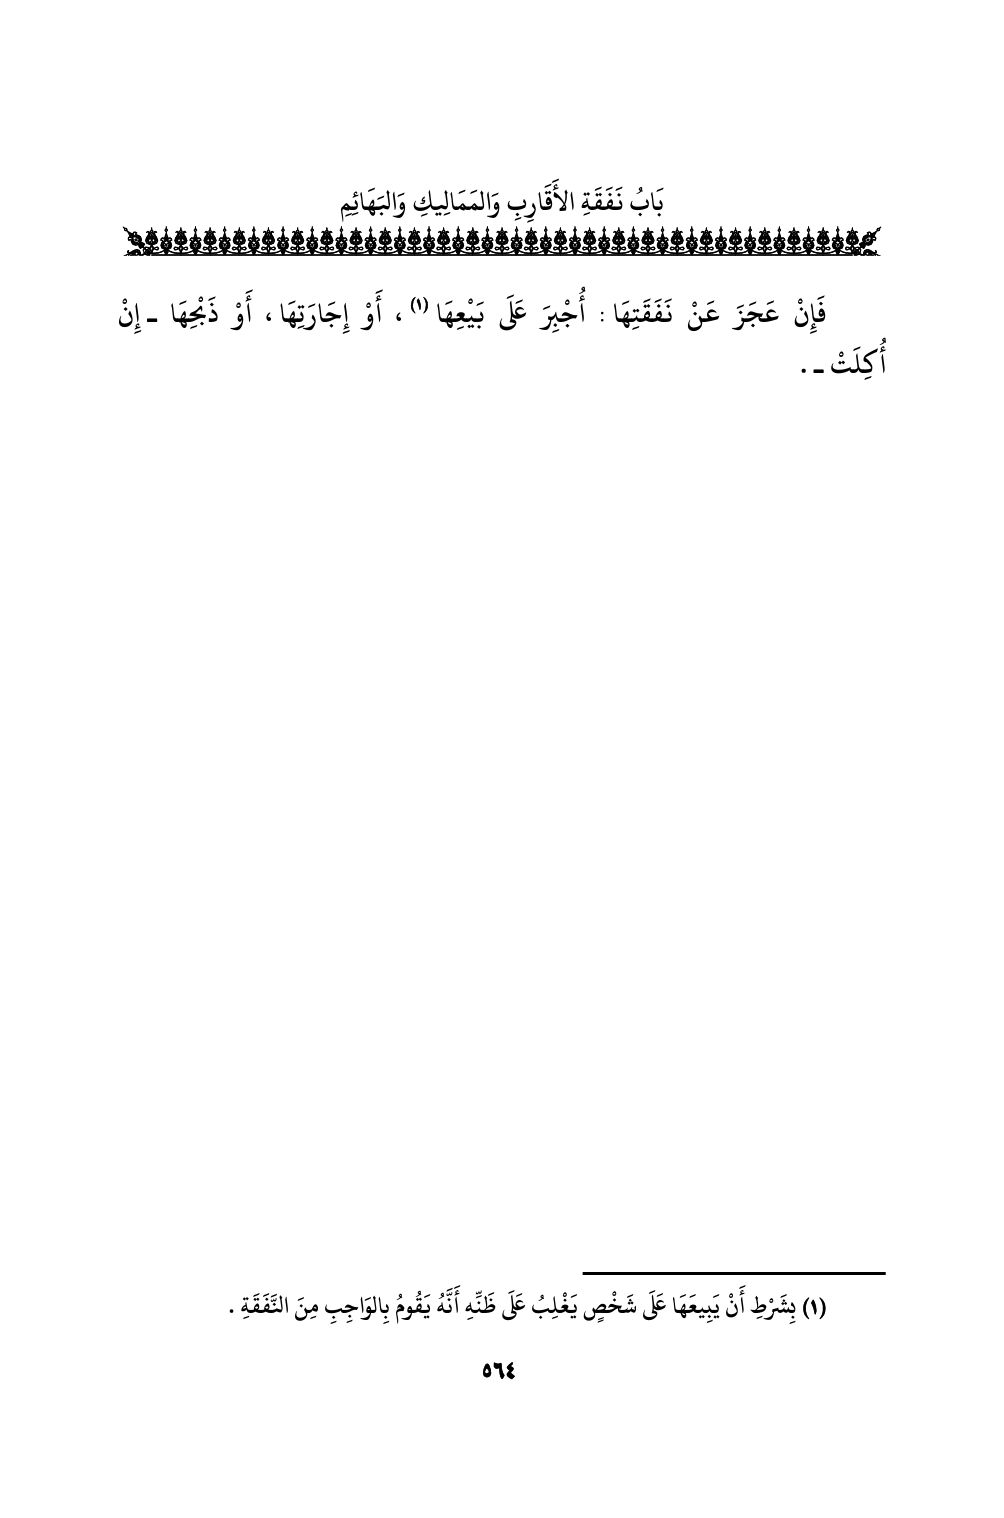 بَابُ نَفَقَةِ الأَقَارِبِ وَالمَمَالِيكِ وَالبَهَائِمِ
فَإِنْ عَجَزَ عَنْ نَفَقَتِهَا : أُجْبِرَ عَلَى بَيْعِهَا (١) ، أَوْ إِجَارَتِهَا ، أَوْ ذَبْحِهَا ـ إِنْ
أُكِلَتْ ـ .
(١) بِشَرْطِ أَنْ يَبِيعَهَا عَلَى شَخْصٍ يَغْلِبُ عَلَى ظَنِّهِ أَنَّهُ يَقُومُ بِالوَاجِبِ مِنَ النَّفَقَةِ .
٥٦٤